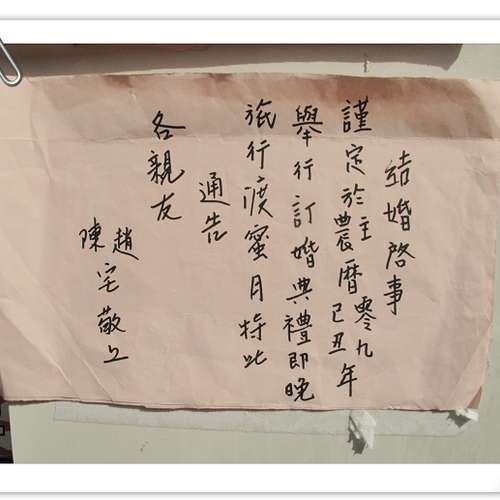 結婚啓事
謹定於主農曆零九己丑年
舉行訂婚典禮即晚
旅行渡蜜月特此
通告
各親友
趙陳宅敬上